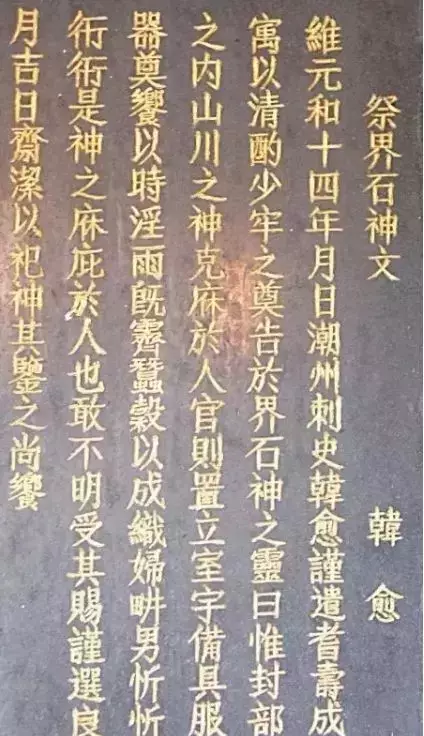 祭界石神文 韓愈
維元和十四年月日潮州刺史韓愈謹遣者壽成
寓以清酌少牢之奠告於界石神之靈曰惟封部
之内山川之神克庥於人官則置立室宇備具服
器奠饗以時淫雨既霽蠶穀以成織婦畊男忻忻
衎衎是神之庥庇於人也敢不明受其賜謹選良
月吉日齋潔以祀神其鑒之尚饗